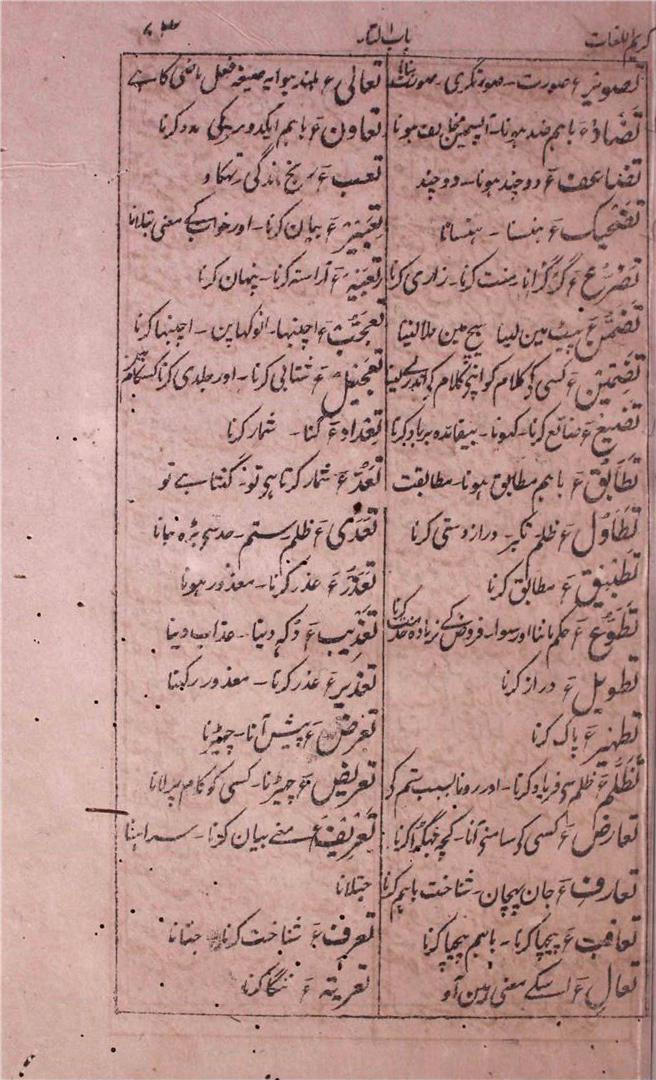 کریم اللغات
باب التاء
تصویر ع صورت۔ صورتگری۔ صورت بنانا
تضاد ع باہم ضد ہونا۔ آپسمین مخالف ہونا
تضاعف ع دوچند ہونا۔ دوچند
تضحیک ع ہنسنا۔ ہنسانا
تضرع ع گڑگڑانا۔ منت کرنا۔ زاری کرنا
تضمن ع پیٹ مین لینا بیچ مین ملالینا
تضمین ع کسی کی کلام کو اپنی کلام کی اندر لے لینا
تضیع ع ضائع کرنا۔ کہونا۔ بیفائدہ برباد کرنا
تطابق ع باہم مطابق ہونا۔ مطابقت
تطاول ع ظلم تکبر۔ درازدستی کرنا
تطبیق ع مطابق کرنا
تطوع ع حکم ماننا اور سوا۔ فروض کے زیادہ کرنا
تطویل ع دراز کرنا
تطہیر ع پاک کرنا
تظلم ع ظلم سی فریاد کرنا۔ اور رونا بسبب ستم کی
تعارض ع کسی کی سامنی آنا۔ کچہ جہگڑا کرنا
تعارف ع جان پہچان۔ شناخت باہم کرنا
تعاقب ع پیچہا کرنا۔ باہم پیچہا کرنا
تعال ع اسکے معنی ہین آو
تعالی ع بلند ہوا یہ صیغہ فعل ماضی کا ہے
تعاون ع باہم ایکدوسریکی مدد کرنا
تعب ع رنج ماندگی۔ تہکاو
تعبیر ع بیان کرنا۔ اور خواب کے معنی بتلانا
تعبیہ ع آراستہ کرنا۔ پنہان کرنا
تعجب ع اچنبہا۔ انوکہاپن۔ اچنبہا کرنا
تعجیل ع شتابی کرنا۔ اور جلدی کرنا
تعداد ع گننا۔ شمار کرنا
تعد ع شمار کرتا ہی تو۔ گنتا ہے تو
تعدی ع ظلم ستم۔ حد سی بڑہ جانا
تعذر ع عذر کرنا۔ معذور ہونا
تعذیب ع دکہ دینا۔ عذاب دینا
تعذیر ع عذر کرنا۔ معذور رکہنا
تعرض ع پیش آنا۔ چہیڑنا
تعریض ع چہیڑنا۔ کسی کو کلام پر لانا
تعریف ع معنے بیان کرنا۔ سراہنا
جتلانا
تعرف ع شناخت کرنا جتانا
تعریہ ع ننگا کرنا